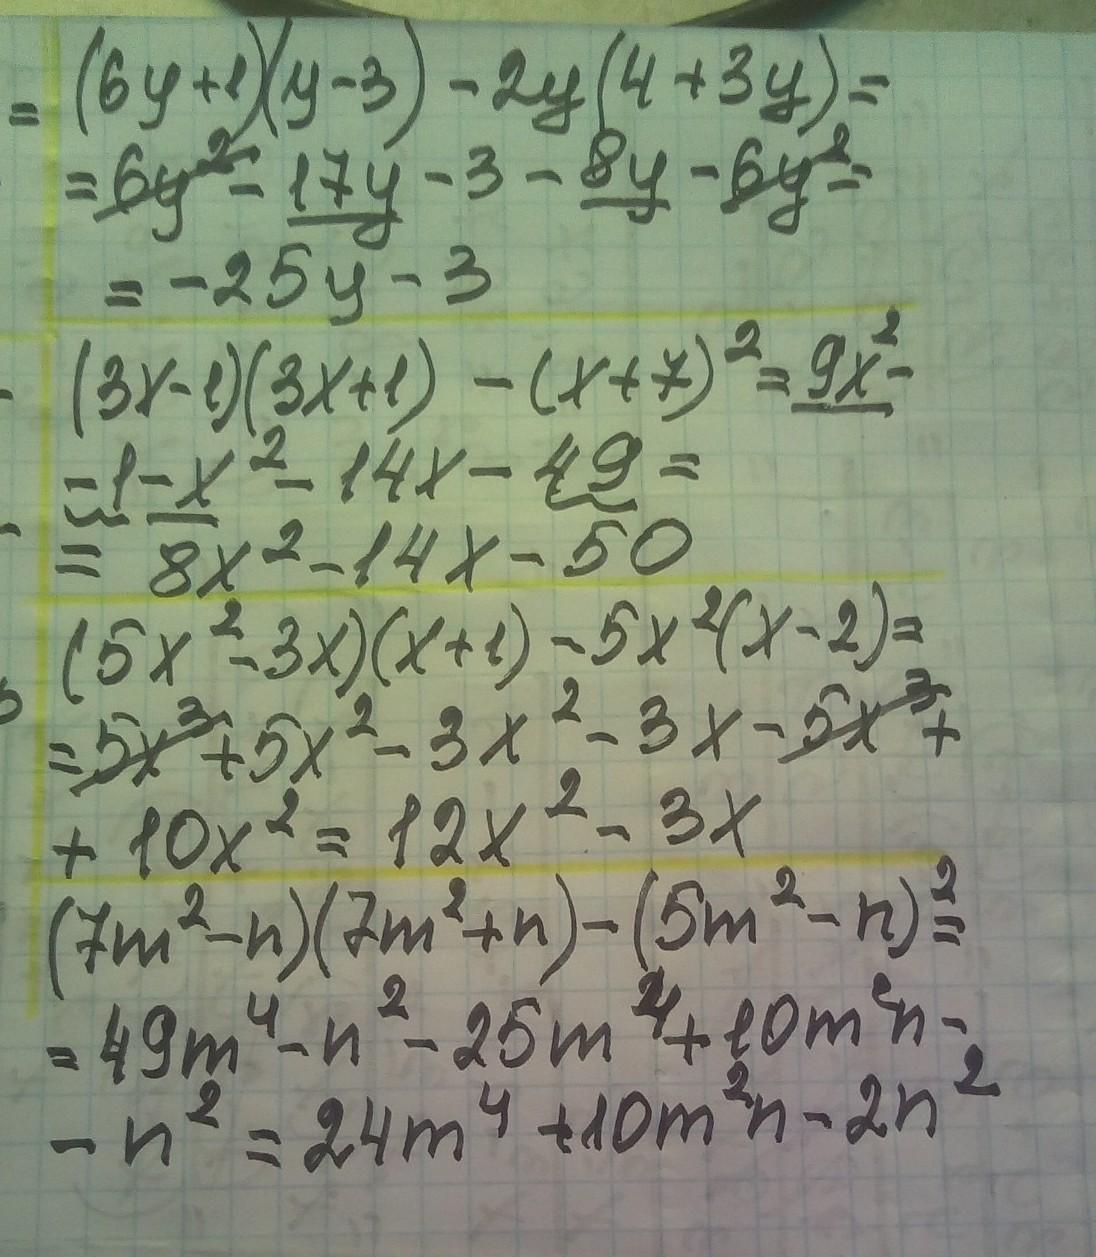 = (6y+1)(y-3) - 2y(4+3y) =
= 6y² - 17y - 3 - 8y - 6y² =
= -25y - 3
(3x-1)(3x+1) - (x+7)² = 9x² -
- 1 - x² - 14x - 49 =
= 8x² - 14x - 50
(5x² - 3x)(x+1) - 5x²(x-2) =
= 5x³ + 5x² - 3x² - 3x - 5x³ +
+ 10x² = 12x² - 3x
(7m² - n)(7m² + n) - (5m² - n)² =
= 49m⁴ - n² - 25m⁴ + 10m²n -
- n² = 24m⁴ + 10m²n - 2n²